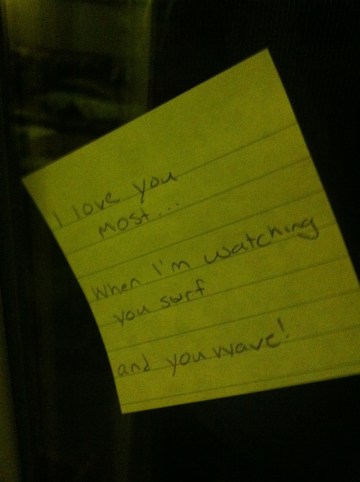 I love you
most...
When I'm watching
you surf
and you wave!